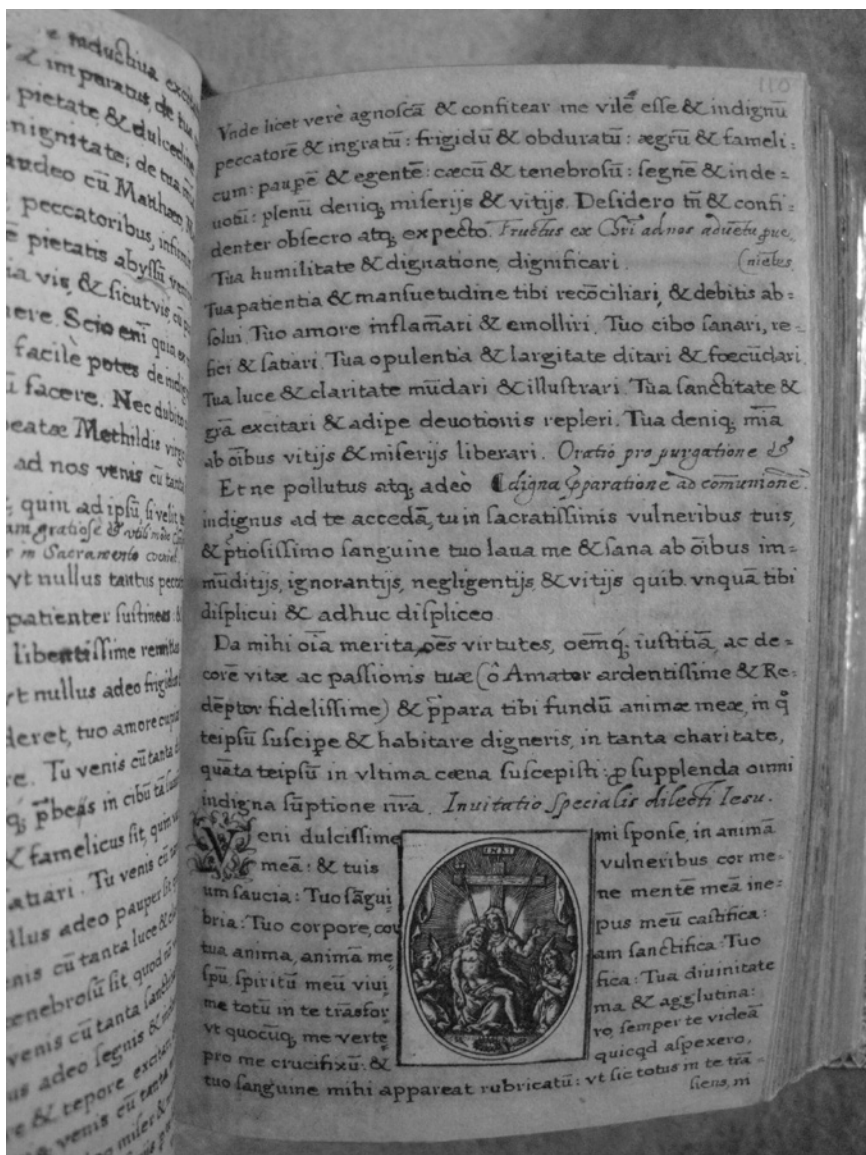 e inductiua exci
& imparatus, de tua
pietate & dulcedine
nignitate; de tua mi
audeo cũ Matthæo
peccatoribus, infirmis
ẽ pietatis abyſſũ, veni
ia vis, & ſicut vis, cũ
ere. Scio enĩ quia ex
facilè potes de indig
ũ facere. Nec dubito
eatæ Methildis virg
ad nos venis cũ tanta
; quim ad ipſũ, ſi velit
am gratioſe & vtili modo
r in Sacramento
vt nullus tantus pecca
patienter ſuſtineas &
libentiſſime remittas
vt nullus adeo frigidus
deret, tuo amore cupia
re. Tu venis cũ tanta
q; p̄beas in cibũ
famelicus ſit, quin
atiari. Tu venis cũ
llus adeo pauper ſit
enis cũ tanta luce &
enebroſũ ſit quod nũ
venis cũ tanta ſancti
us adeo ſegnis &
e & tepore excitari
venis cũ tanta
adeo miſer &
110
Vnde licet verè agnoſcã & confitear me vilẽ eſſe & indignũ
peccatorẽ & ingratũ: frigidũ & obduratũ: ægrũ & fameli:
cum: paupẽ & egentẽ: cæcũ & tenebroſũ: ſegnẽ & inde=
uotũ: plenũ deniq; miſerijs & vitijs. Deſidero tñ & confi:
denter obſecro atq; expecto. Fructus ex Chri ad nos aduẽtu ꝓue
Tua humilitate & dignatione, dignificari. (niẽtes.
Tua patientia & manſuetudine tibi recõciliari, & debitis ab=
ſolui. Tuo amore inflam̄ari & emolliri. Tuo cibo ſanari, re=
fici & ſatiari. Tua opulentia & largitate ditari & foecũdari.
Tua luce & claritate mũdari & illuſtrari. Tua ſanctitate &
gr̃a excitari & adipe deuotionis repleri. Tua deniq; mĩa
ab oĩbus vitijs & miſerijs liberari. Oratio pro purgatione &
Et ne pollutus atq; adeò ❡digna p̱paratione ad com̃unionẽ.
indignus ad te accedã, tu in ſacratiſſimis vulneribus tuis,
& p̃tioſiſſimo ſanguine tuo laua me & ſana ab oĩbus im=
mũditijs, ignorantijs, negligentijs & vitijs quib. vnquã tibi
diſplicui & adhuc diſpliceo.
Da mihi oĩa merita, oẽs virtutes, oẽmq; iuſtitiã, ac de=
corẽ vitæ ac paſſionis tuæ (ô Amator ardentiſſime & Re=
dẽptor fideliſſime) & p̄para tibi fundũ animæ meæ, in q̊
teipſũ ſuſcipe & habitare digneris, in tanta charitate,
quãta teipſũ in vltima cæna ſuſcepiſti: ꝓ ſupplenda omni
indigna ſũptione nr̃a. Inuitatio ſpecialis dilecti Ieſu.
Veni dulciſſime mi ſponſe, in animã
meã: & tuis vulneribus cor me=
um ſaucia: Tuo ſãgui ne mentẽ meã ine=
bria: Tuo corpore, cor pus meũ caſtifica:
tua anima, animã me am ſanctifica: Tuo
ſpũ, ſpiritũ meũ viui fica: Tua diuinitate
me totũ in te trãſfor ma & agglutina:
vt quocũq; me verte ro, ſemper te videã
pro me crucifixũ: & quicq̃d aſpexero,
tuo ſanguine mihi appareat rubricatũ: vt ſic totus in te trã=
ſiens, in
INRI